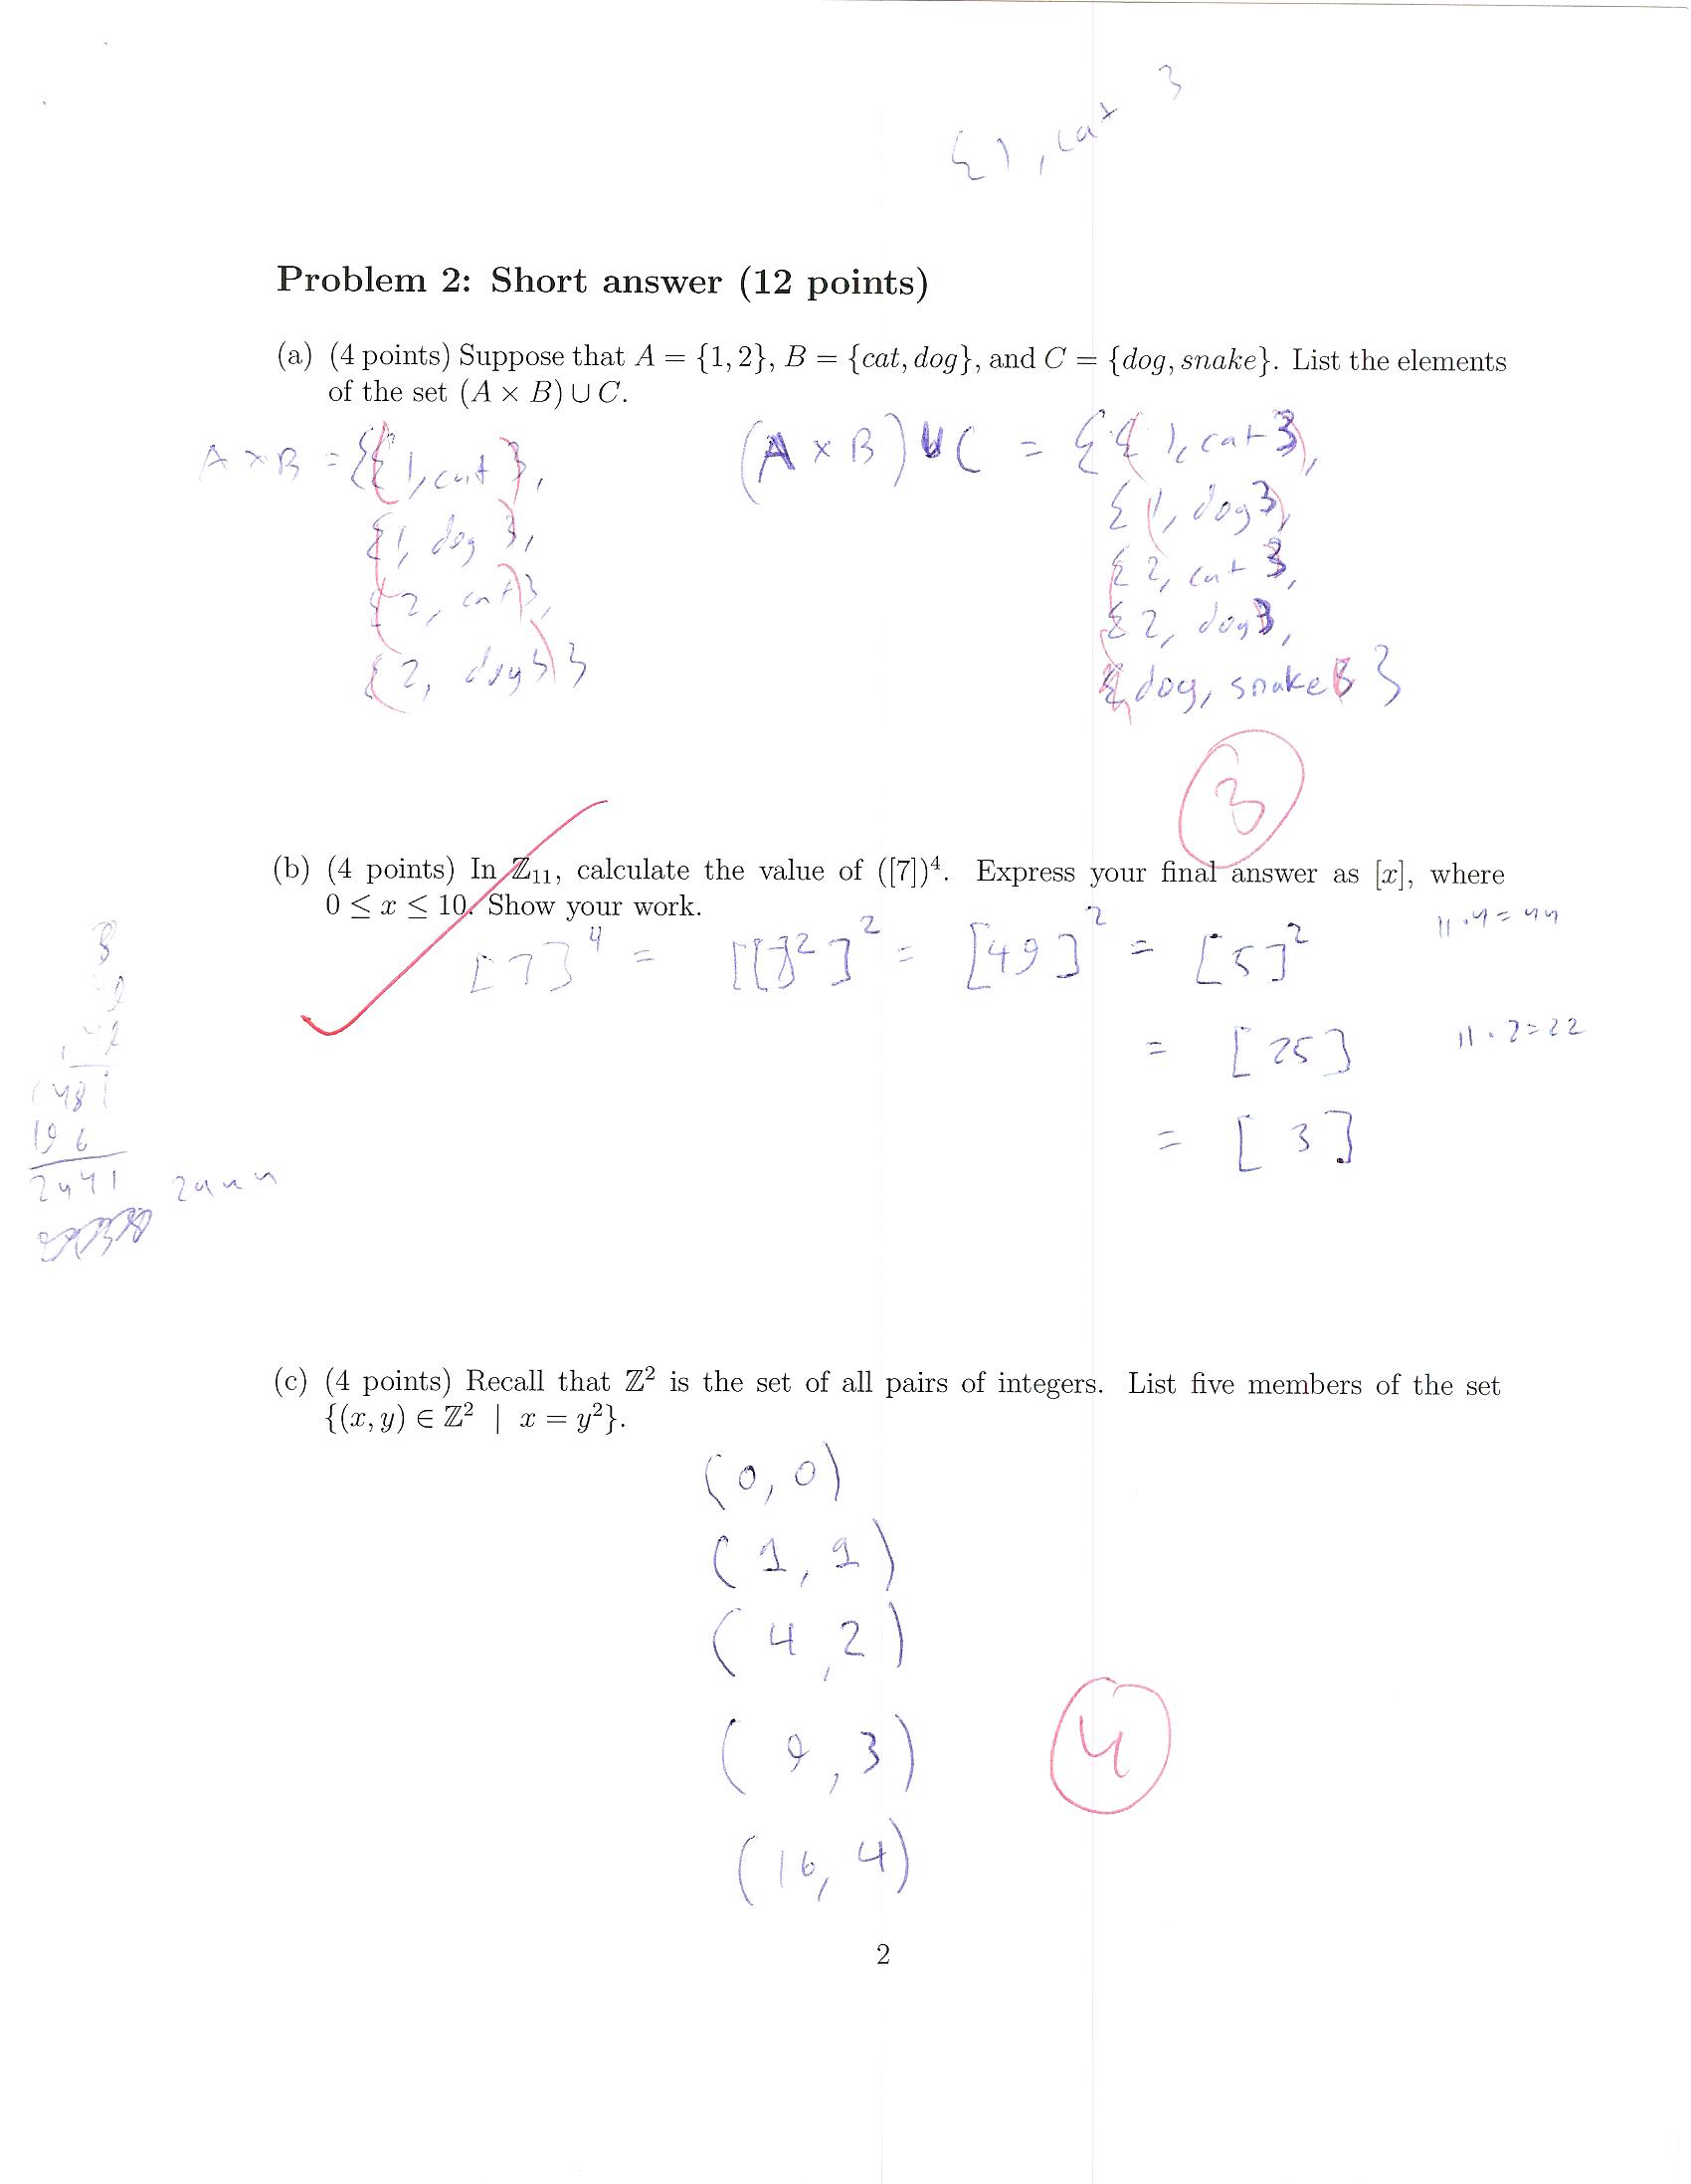 {1, cat }
Problem 2: Short answer (12 points)
(a) (4 points) Suppose that A = {1, 2}, B = {cat, dog}, and C = {dog, snake}. List the elements
of the set (A × B) ∪ C.
A × B = {{1, cat},
{1, dog},
{2, cat},
{2, dog}}
(A × B) ∪ C = {{1, cat},
{1, dog},
{2, cat},
{2, dog},
{dog, snake}}
3
(b) (4 points) In ℤ₁₁, calculate the value of ([7])⁴. Express your final answer as [x], where
0 ≤ x ≤ 10. Show your work.
[7]⁴ = [[7]²]² = [49]² = [5]²
11 · 4 = 44
= [25]
11 · 2 = 22
= [3]
196
2441
(c) (4 points) Recall that ℤ² is the set of all pairs of integers. List five members of the set
{(x, y) ∈ ℤ² | x = y²}.
(0, 0)
(1, 1)
(4, 2)
(9, 3)
4
(16, 4)
2